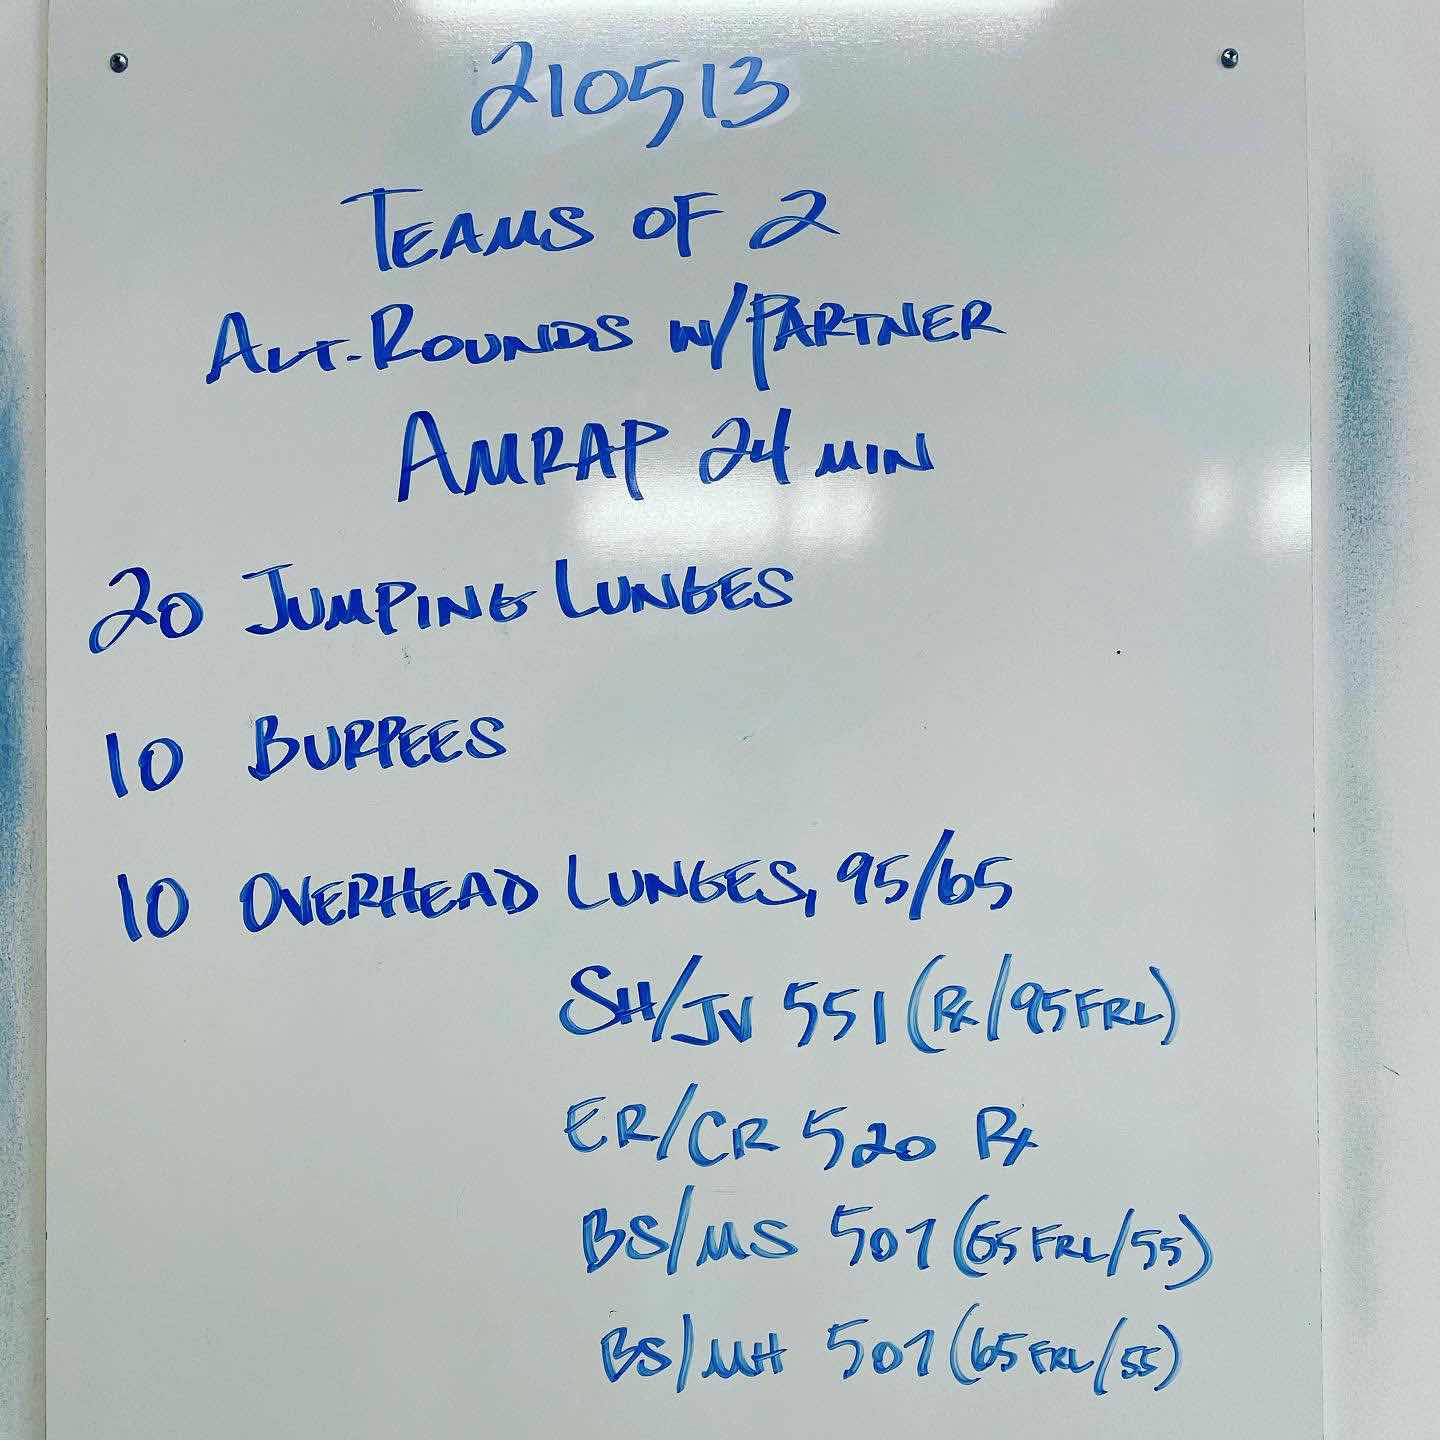 210513
TEAMS OF 2
ALT-ROUNDS W/PARTNER
AMRAP 24 MIN
20 JUMPING LUNGES
10 BURPEES
10 OVERHEAD LUNGES, 95/65
SH/JV 551 (Rx/95 FRL)
ER/CR 520 Rx
BS/MS 507 (65 FRL/55)
BS/MH 507 (65 FRL/55)